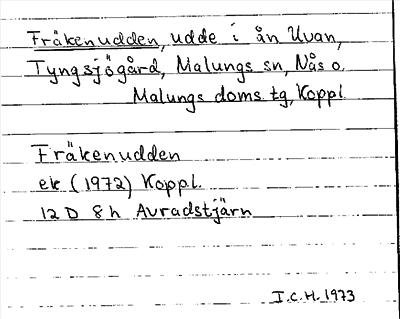 Fräkenudden, udde i ån Uvan,
Tyngsjögård, Malungs sn, Nås o.
Malungs doms. tg, Koppl.
Fräkenudden
ek (1972) Koppl.
12 D 8h Avradstjärn
I.C.H. 1973